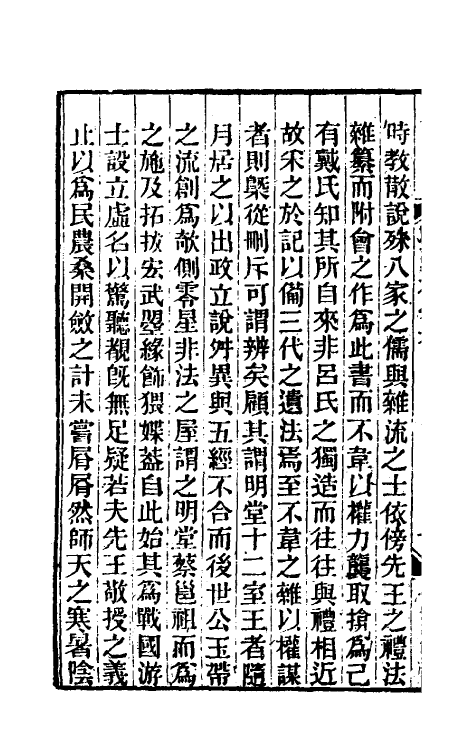 時教散說殊八家之儒與雜流之士依傍先王之禮法
雜纂而附會之作爲此書而不韋以權力襲取搶爲己
有戴氏知其所自來非呂氏之獨造而往往與禮相近
故采之於記以僃三代之遺法焉至不韋之雜以權謀
者則槩從刪斥可謂辨矣顧其謂明堂十二室王者隨
月居之以出政立說舛異與五經不合而後世公玉帶
之流創爲欹側零星非法之屋謂之明堂蔡邕祖而爲
之施及拓拔宏武曌緣飾猥媟葢自此始其爲戰國游
士設立虛名以驚聽覩旣無足疑若夫先王敬授之義
止以爲民農桑開斂之計未嘗屑屑然師天之寒暑陰